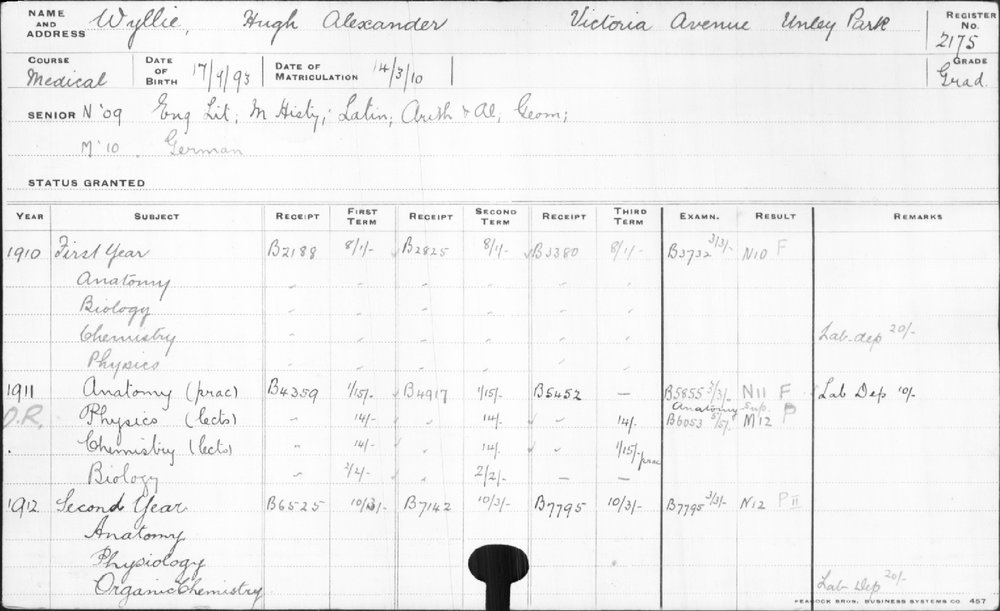 NAME AND ADDRESS Wyllie, Hugh Alexander Victoria Avenue Unley Park REGISTER No. 2175
COURSE Medical DATE OF BIRTH DATE OF MATRICULATION 14/3/10 GRADE Grad.
SENIOR N '09 Eng Lit; M Histy; Latin; Arith & Al, Geom;
M '10 German
STATUS GRANTED
YEAR SUBJECT RECEIPT FIRST TERM RECEIPT SECOND TERM RECEIPT THIRD TERM EXAMN. RESULT REMARKS
1910 First Year B2188 8/1/- B2825 8/1/- B3380 8/1/- B3732 3/3/- N10 F
Anatomy " " " " " "
Biology " " " " " "
Chemistry " " " " " " Lab-dep 20/-
Physics " " " " " "
1911 Anatomy (prac) B4359 1/15/- B4917 1/15/- B5452 — B5855 3/3/- N11 F Lab Dep 10/-
O.R. Physics (lects) " 14/- " 14/- " 14/- Anatomy Sup. B6053 5/5/- M12 P
Chemistry (lects) " 14/- " 14/- " 1/15/- prac
Biology " 2/2/- " 2/2/- — —
1912 Second Year B6525 10/3/- B7142 10/3/- B7795 10/3/- B7795 3/3/- N12 P II
Anatomy
Physiology
Organic Chemistry Lab Dep 20/-
PEACOCK BROS. BUSINESS SYSTEMS CO 457